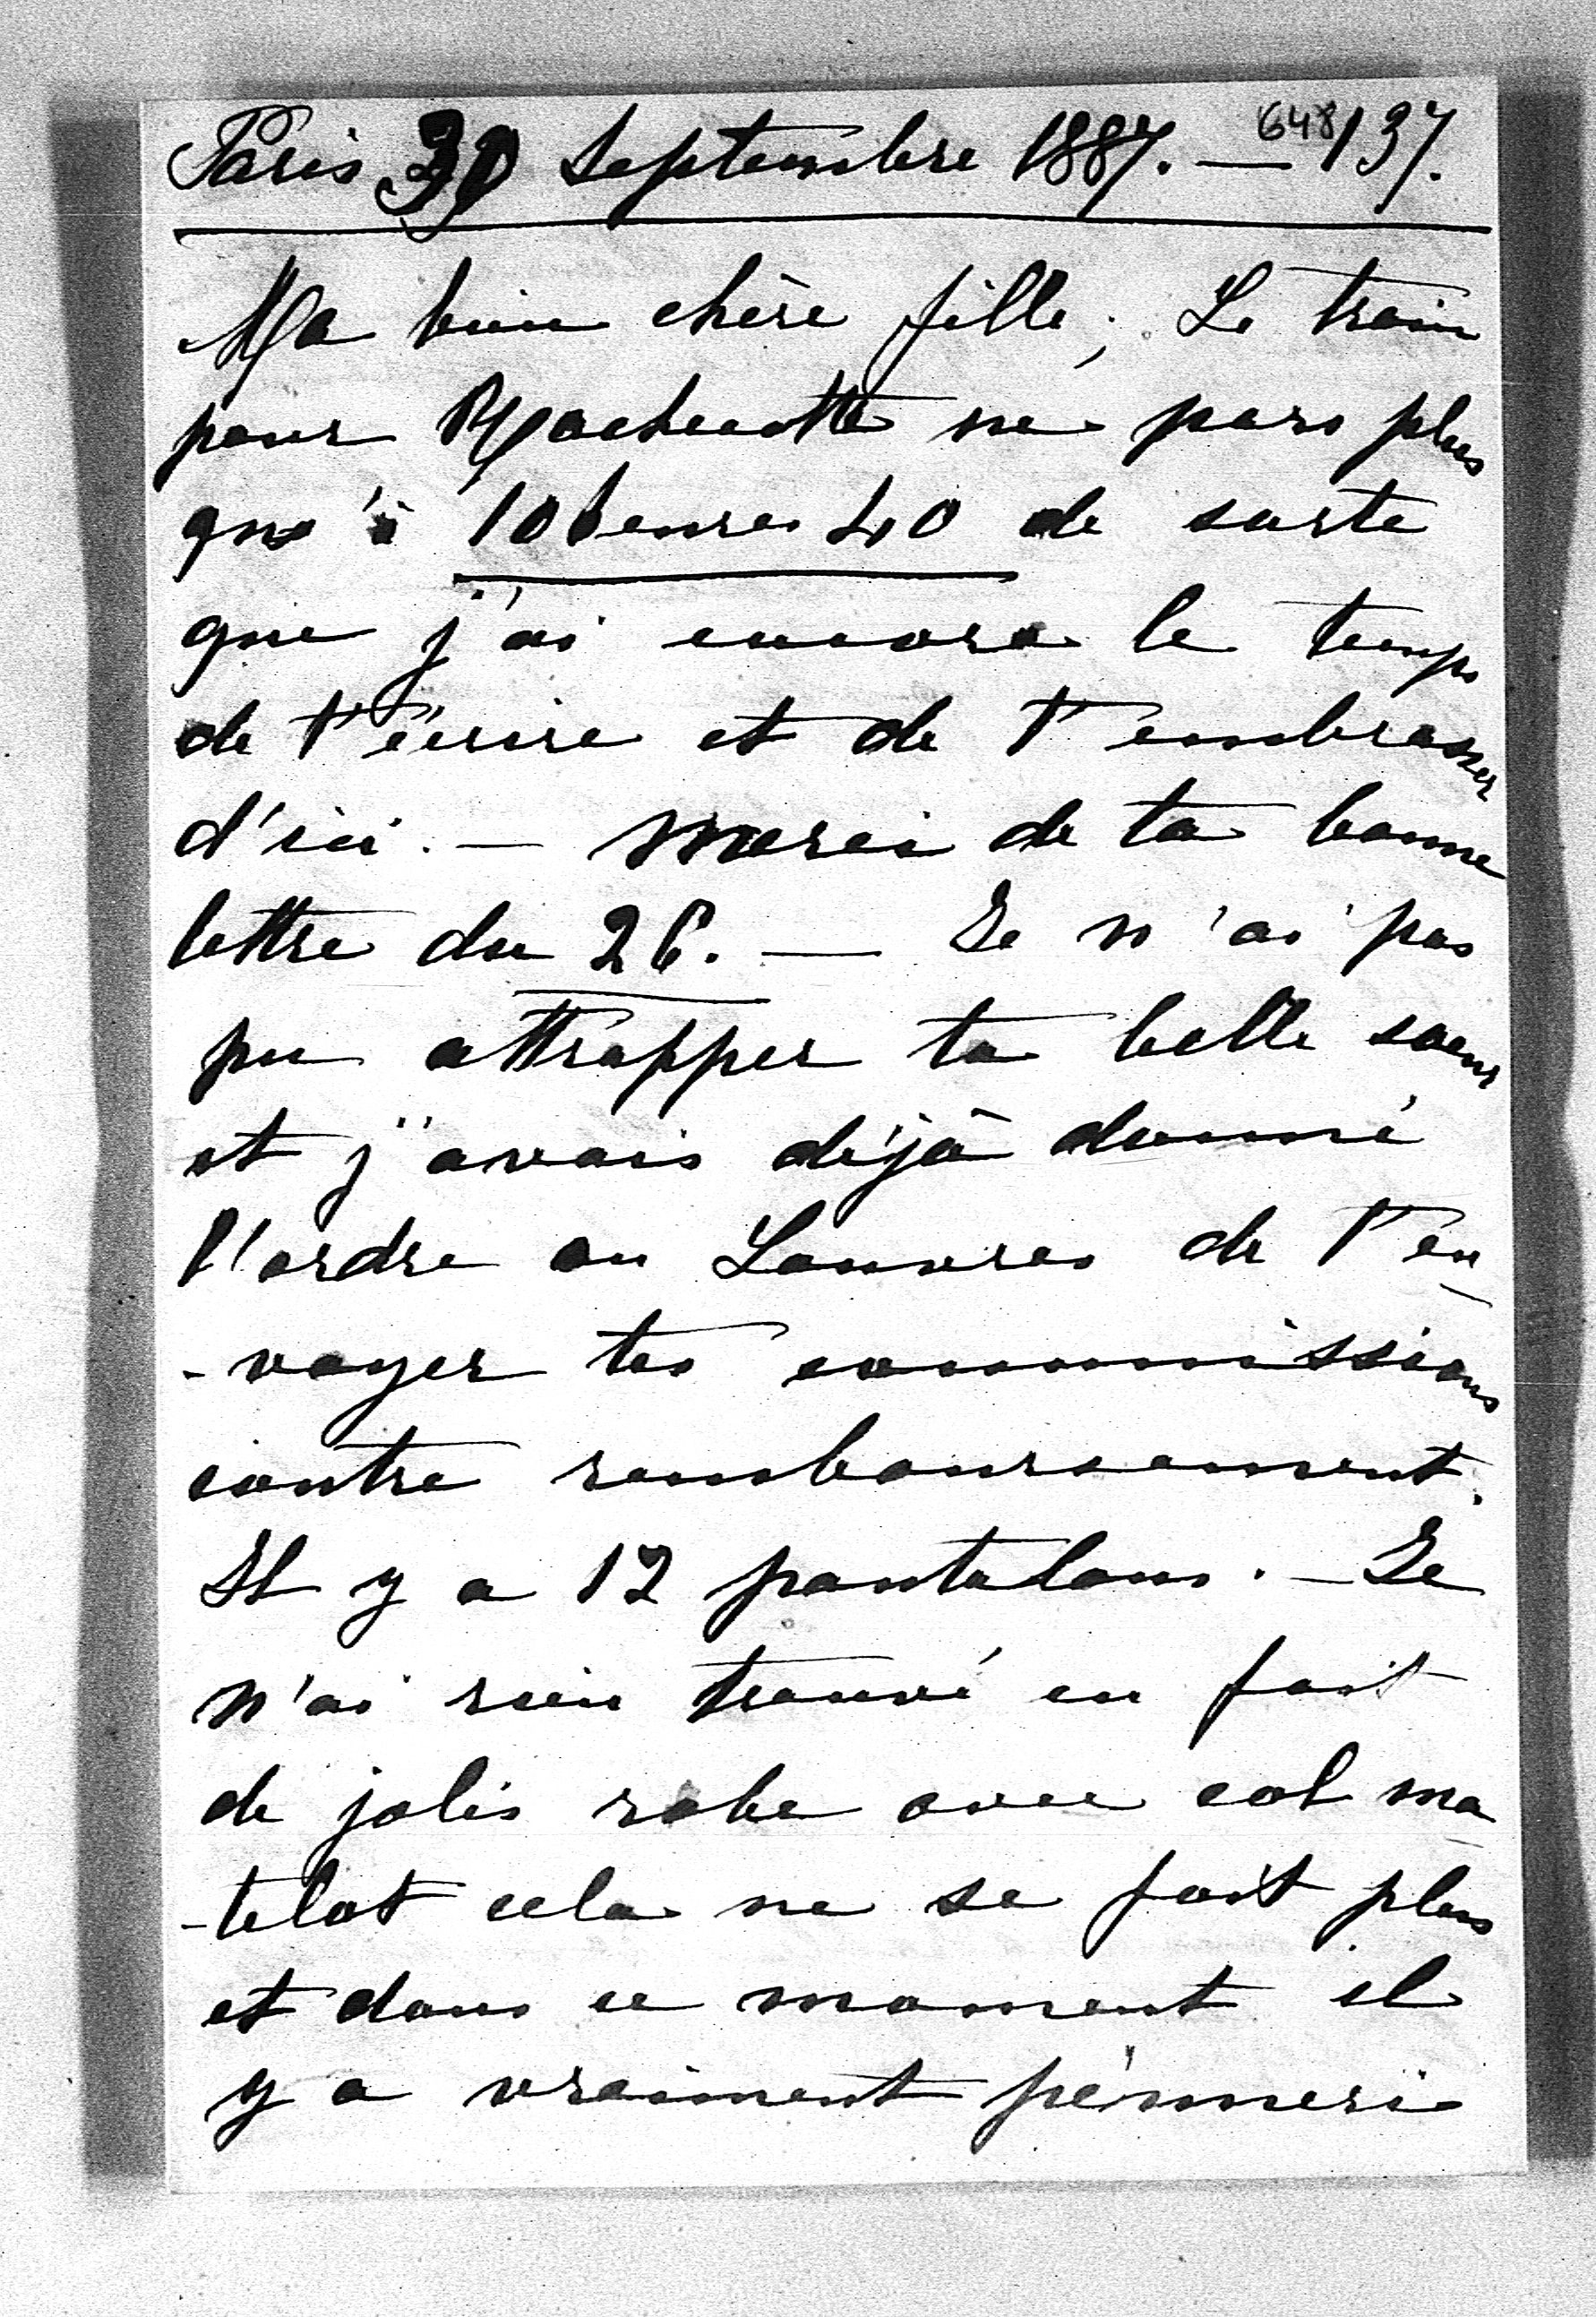 Paris 30 Septembre 1887. — 648 137.
Ma bien chère fille; Le train
pour ne pars plus
qu'à 10 heures 40 de sorte
que j'ai encore le temps
de t'écrire et de t'embrasser
d'ici. — Merci de ta bonne
lettre du 26. — Je n'ai pas
pu attrapper ta belle soeur
et j'avais déjà donné
l'ordre au Louvres de t'en
-voyer tes commissions
contre remboursement.
Il y a 12 pantalons. — Je
n'ai rien trouvé en fait
de jolis robe avec col ma
-telot cela ne se fait plus
et dans ce moment il
y a vraiment pénneri